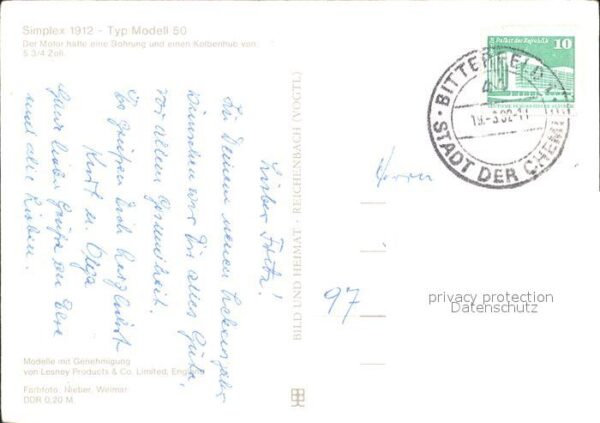 Simplex 1912 – Typ Modell 50
Der Motor hatte eine Bohrung und einen Kolbenhub von
5 3/4 Zoll.
Lieber Fritz!
Zu Deinem neuen Lebensjahr
wünschen wir Dir alles Gute,
vor allem Gesundheit.
Es grüßen Dich herzlichst
Kurt u. Olga
Ganz lieben Grüße an Eure
und alle Lieben.
Modelle mit Genehmigung
von Lesney Products & Co. Limited, England
Farbfoto: Nieber, Weimar
DDR 0,20 M
BILD UND HEIMAT · REICHENBACH (VOGTL)
Palast der Republik
10
BITTERFELD 1
19.-3.82-11
STADT DER CHEMIE
Herrn
97
privacy protection
Datenschutz